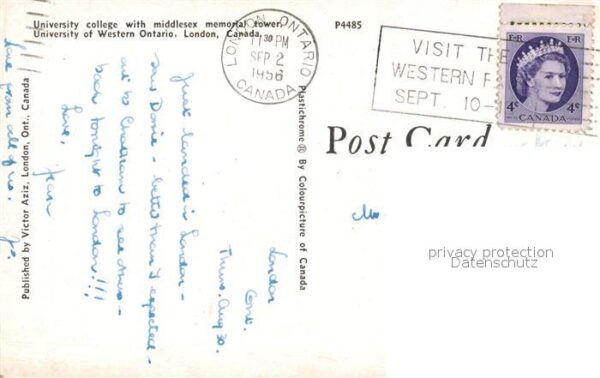 University college with middlesex memorial tower,
University of Western Ontario. London, Canada.
P4485
LONDON ONTARIO
11 30 PM
SEP 2
1956
CANADA
VISIT THE
WESTERN F
SEPT. 10-
E R
E R
4¢
4¢
CANADA
Post Card
Published by Victor Aziz, London, Ont., Canada
Plastichrome ® By Colourpicture of Canada
London
Ont.
Thurs. Aug 30.
Just landed in London -
saw Dorie - better than I expected -
out to Chatham to see
back tonight to London!!!
Love,
Jean
Love from all of us.
privacy protection
Datenschutz